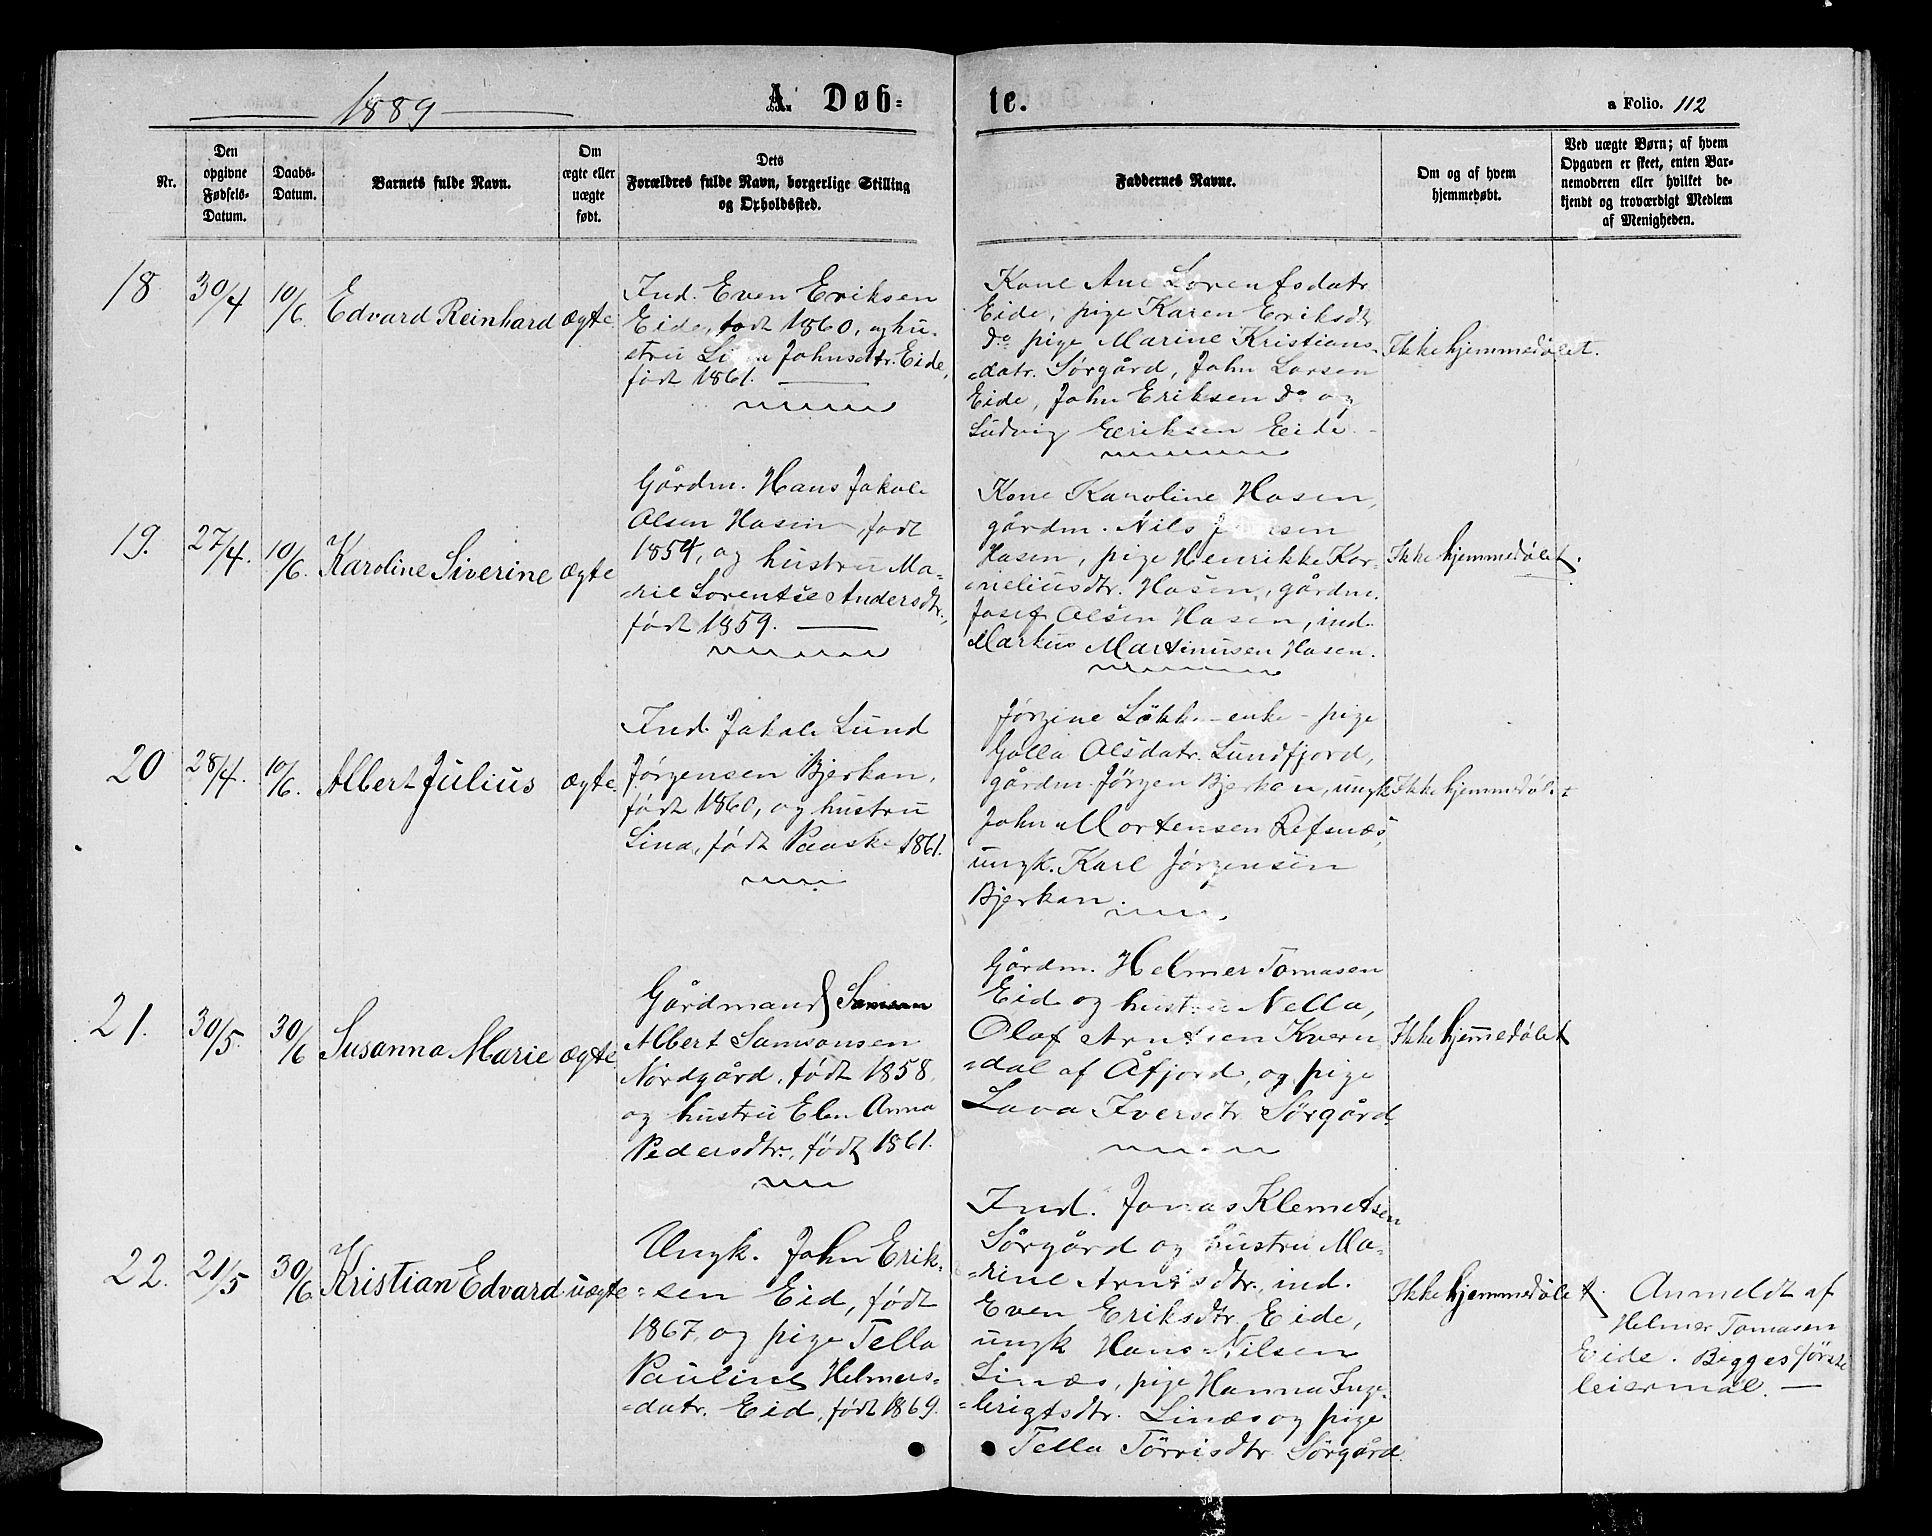 1889
A. Døb-
te.
a Folio. 112
Nr.
Den
opgivne
Fødsels-
Datum.
Daabs-
Datum.
Barnets fulde Navn.
Om
ægte eller
uægte
født.
Dets
Forældres fulde Navn, borgerlige Stilling
og Opholdssted.
Faddernes Navne.
Om og af hvem
hjemmedøbt.
Ved uægte Børn; af hvem
Opgaven er skeet, enten Bar-
nemoderen eller hvilket be-
kjendt og troværdigt Medlem
af Menigheden.
18
30/4
10/6.
Edvard Reinhard
ægte
Ind. Even Eriksen
Eide, født 1860, og hu-
stru Johnsdtr. Eide,
født 1861.
Kone Ane Lorentsdatr
Eide, pige Karen Eriksdtr
Do pige Marine Kristians-
datr. Sørgård, John Larsen
Eide, John Eriksen Do og
Ludvig Eriksen Eide.
Ikke hjemmedøbt.
19.
27/4.
10/6.
Karoline Siverine
ægte
Gårdm. Hans Jakob
Olsen Hasen, født
1854, og hustru Ma-
rie Lorentse Andersdtr.,
født 1859.
Kone Karoline Hasen,
gårdm. Nils
Hasen, pige Henrikke Kor-
neliusdtr. Hasen, gårdm.
Josef Olsen Hasen, ind.
Markus Martinusen Hasen.
Ikke hjemmedøbt.
20
28/4.
10/6.
Albert Julius
ægte.
Ind. Jakob Lund
Jørgensen Bjerkan,
født 1860, og hustru
Lina, født Paaske 1861.
Jørgine Løkke - enke - pige
Golla Olsdatr. Lundfjord,
gårdm. Jørgen Bjerkan, ungk
John Mortensen Refsnæs,
ungk. Karl Jørgensen
Bjerkan.
Ikke hjemmedøbt
21.
30/5.
30/6
Susanna Marie
ægte
Gårdmand Samson
Albert Samsonsen
Nordgård, født 1858,
og hustru Elen Anna
Pedersdtr., født 1861.
Gårdm. Helmer Tomasen
Eid og hustru Nella,
Olaf Arntsen Kvern-
dal af Åfjord, og pige
Lava Iversdtr. Sørgård
Ikke hjemmedøbt
22.
21/5
30/6.
Kristian Edvard
uægte
Ungk. John Erik-
sen Eid, født
1867, og pige Tella
Pauline Helmers-
datr. Eid, født 1869.
Ind. Jonas Klemetsen
Sørgård og hustru Ma-
rine Arntsdtr., ind.
Even Eriksdtr. Eide,
ungk Hans Nilsen
Linæs, pige Hanna Inge-
brigtsdtr. Linæs og pige
Tella Tørrisdtr. Sørgård.
Ikke hjemmedøbt.
Anmeldt af
Helmer Tomasen
Eide. Begges første
leiermål.